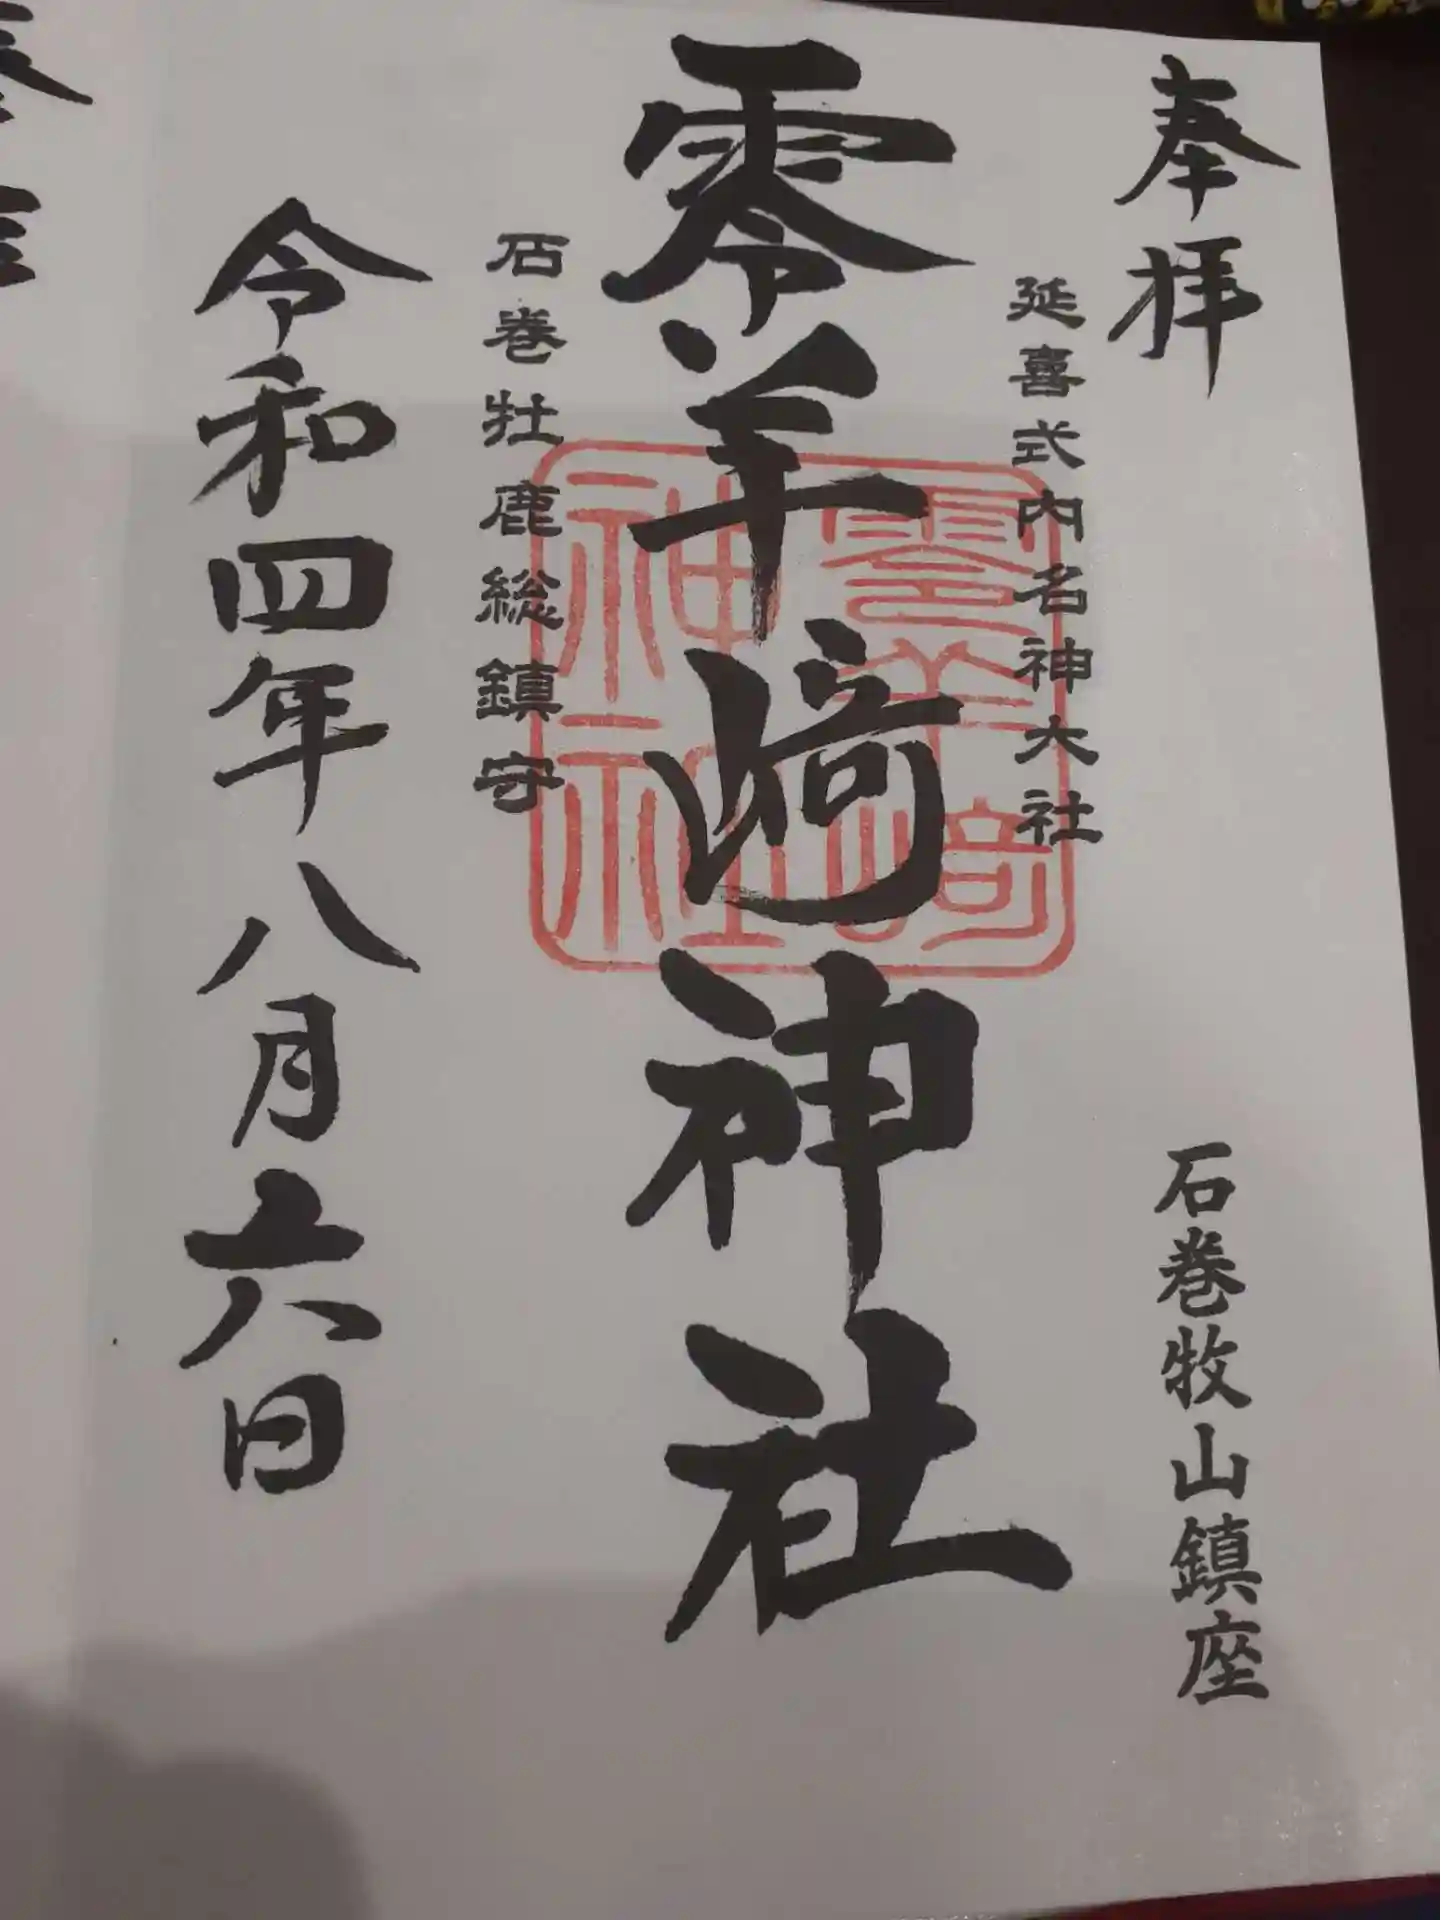 奉拝
石巻牧山鎮座
延喜式内名神大社
零羊崎神社
石巻牡鹿総鎮守
令和四年八月六日
零羊崎
神社